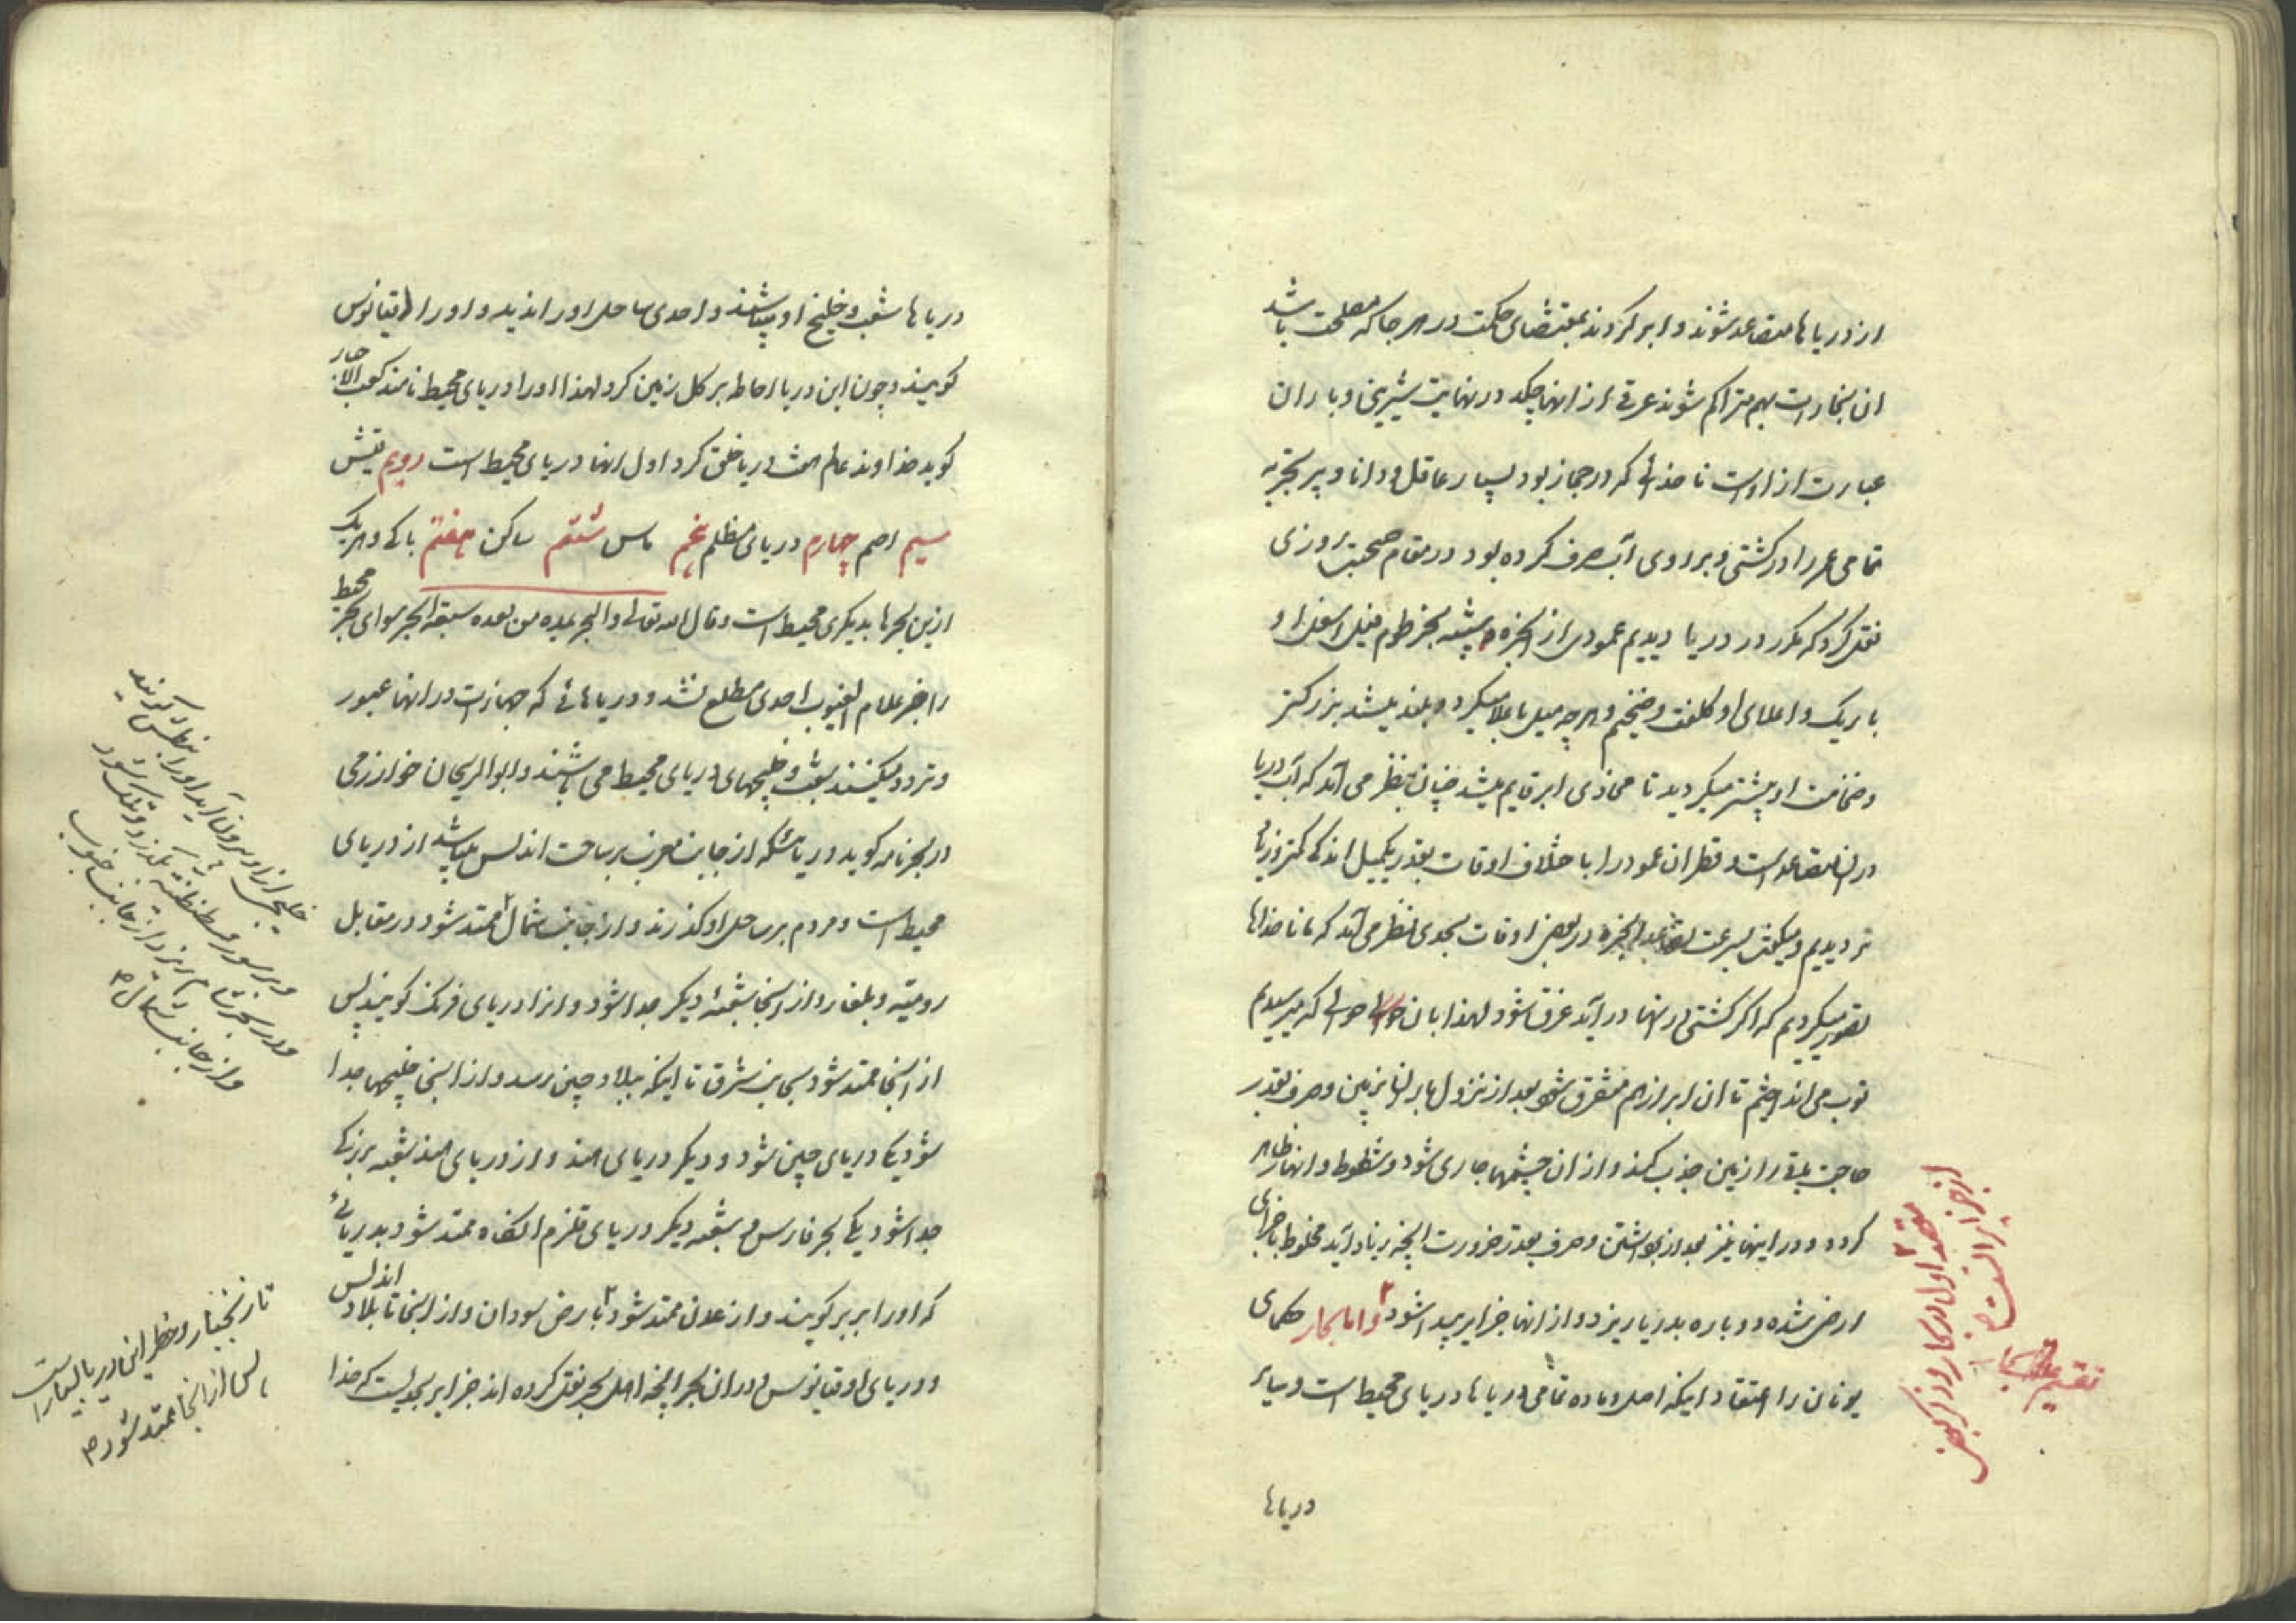 از دریاها متصاعد شوند و ابر گردند بمقتضای حکمت در هر جا که مصلحت باشد
ان بخارات بهم متراکم شوند عرقی از انها چکد در نهایت شیرینی و باران
عبارت از اوست ناخدائی که در جهاز بود بسیار عاقل و دانا و پر تجربه
تمامی عمر را در کشتی و بر روی آب صرف کرده بود در مقام صحبت روزی
نقل کرد که مکرر در دریا دیدیم عمودی از ابخره شبیه بخرطوم فیل اسفل او
باریک و اعلای او کلفت و ضخیم و هر چه میل باعلا میکرد و بلند میشد بزرگتر
و ضخامت او بیشتر میگردید تا محاذی ابر قایم میشد چنان بنظر می آمد که آب دریا
در ان متصاعد است و قطر ان عمود را باختلاف اوقات بقدر یکمیل اندکی کمتر و زیاد
تر دیدیم و میگفت بسرعت تصاعد ابخره در بعض اوقات بحدی بنظر می آمد که ما ناخداها
تصور میکردیم که اگر کشتی در انها در آید غرق شود لهذا بان حوالی که میرسیدیم
توپ می انداختیم تا ان ابر از هم متفرق شود بعد از نزول بارانها بزمین و صرف بقدر
حاجت باقی را زمین جذب کند و از ان چشمها جاری شود و شطوط و انهار ظاهر
گردد و در اینها نیز بعد از برداشتن و صرف بقدر ضرورت انچه زیاد آید مخلوط باجزای
ارض شده دوباره بدریا ریزد و از انها جزایر پیدا شود و اما بحار حکمای
یونان را اعتقاد اینکه اصل و ماده تمامی دریاها دریای محیط است و سایر
دریاها
مقصد اول در بحار و ذکر بعض
از جزایر
دریاها شعب و خلیج او میباشند و احدی ساحل او را ندیده و او را اقیانوس
گویند و چون این دریا احاطه بر کل زمین کرد لهذا او را دریای محیط نامند کعب الاحبار
گوید خداوند عالم هفت دریا خلق کرد اول انها دریای محیط است دویم قینس
سیم اصم چهارم دریای مظلم پنجم ماس ششم ساکن هفتم باکی و هر یک
ازین بحرها بدیگری محیط است و قال الله تعالی والبحر یمده من بعده سبعة ابحر سوای بحر محیط
را خبر علام الغیوب احدی مطلع نشد و دریاهائی که جهازات در انها عبور
و تردد میکنند شعب و خلیجهای دریای محیط می باشند و ابو الریحان خوارزمی
در بحرنامه گوید دریائیکه از جانب مغرب بر ساحت اندلس میباشد از دریای
محیط است و مردم بر ساحل او گذرند و از جانب شمال ممتد شود در مقابل
رومیه و بلغار و از اینجا شعبه دیگر جدا شود و انرا دریای فرنگ گویند پس
از اینجا ممتد شود بجانب شرق تا اینکه ببلاد چین رسد و از اینجا خلیجها جدا
شود یکی دریای چین شود و دیگر دریای هند و از دریای هند شعبه بزرگی
جدا شود یکی بحر فارس و شعبه دیگر دریای قلزم انگاه ممتد شود بدریائی
که او را بربر گویند و از عدن ممتد شود تا بارض سودان و از اینجا تا بلاد اندلس
و دریای اوقیانوس و در ان بحر انچه اهل بحر نقل کرده اند جزایر بحدیست که خدا
خلیجی از او برون آید او را بنطس گویند
و بر سور قسطنطنیه بگذرد و تنگ شود
و در بحر شام ریزد از جانب جنوب
و از جانب شمال
تا زنجبار و خطر این دریا بسیار است
پس از انجا ممتد شود